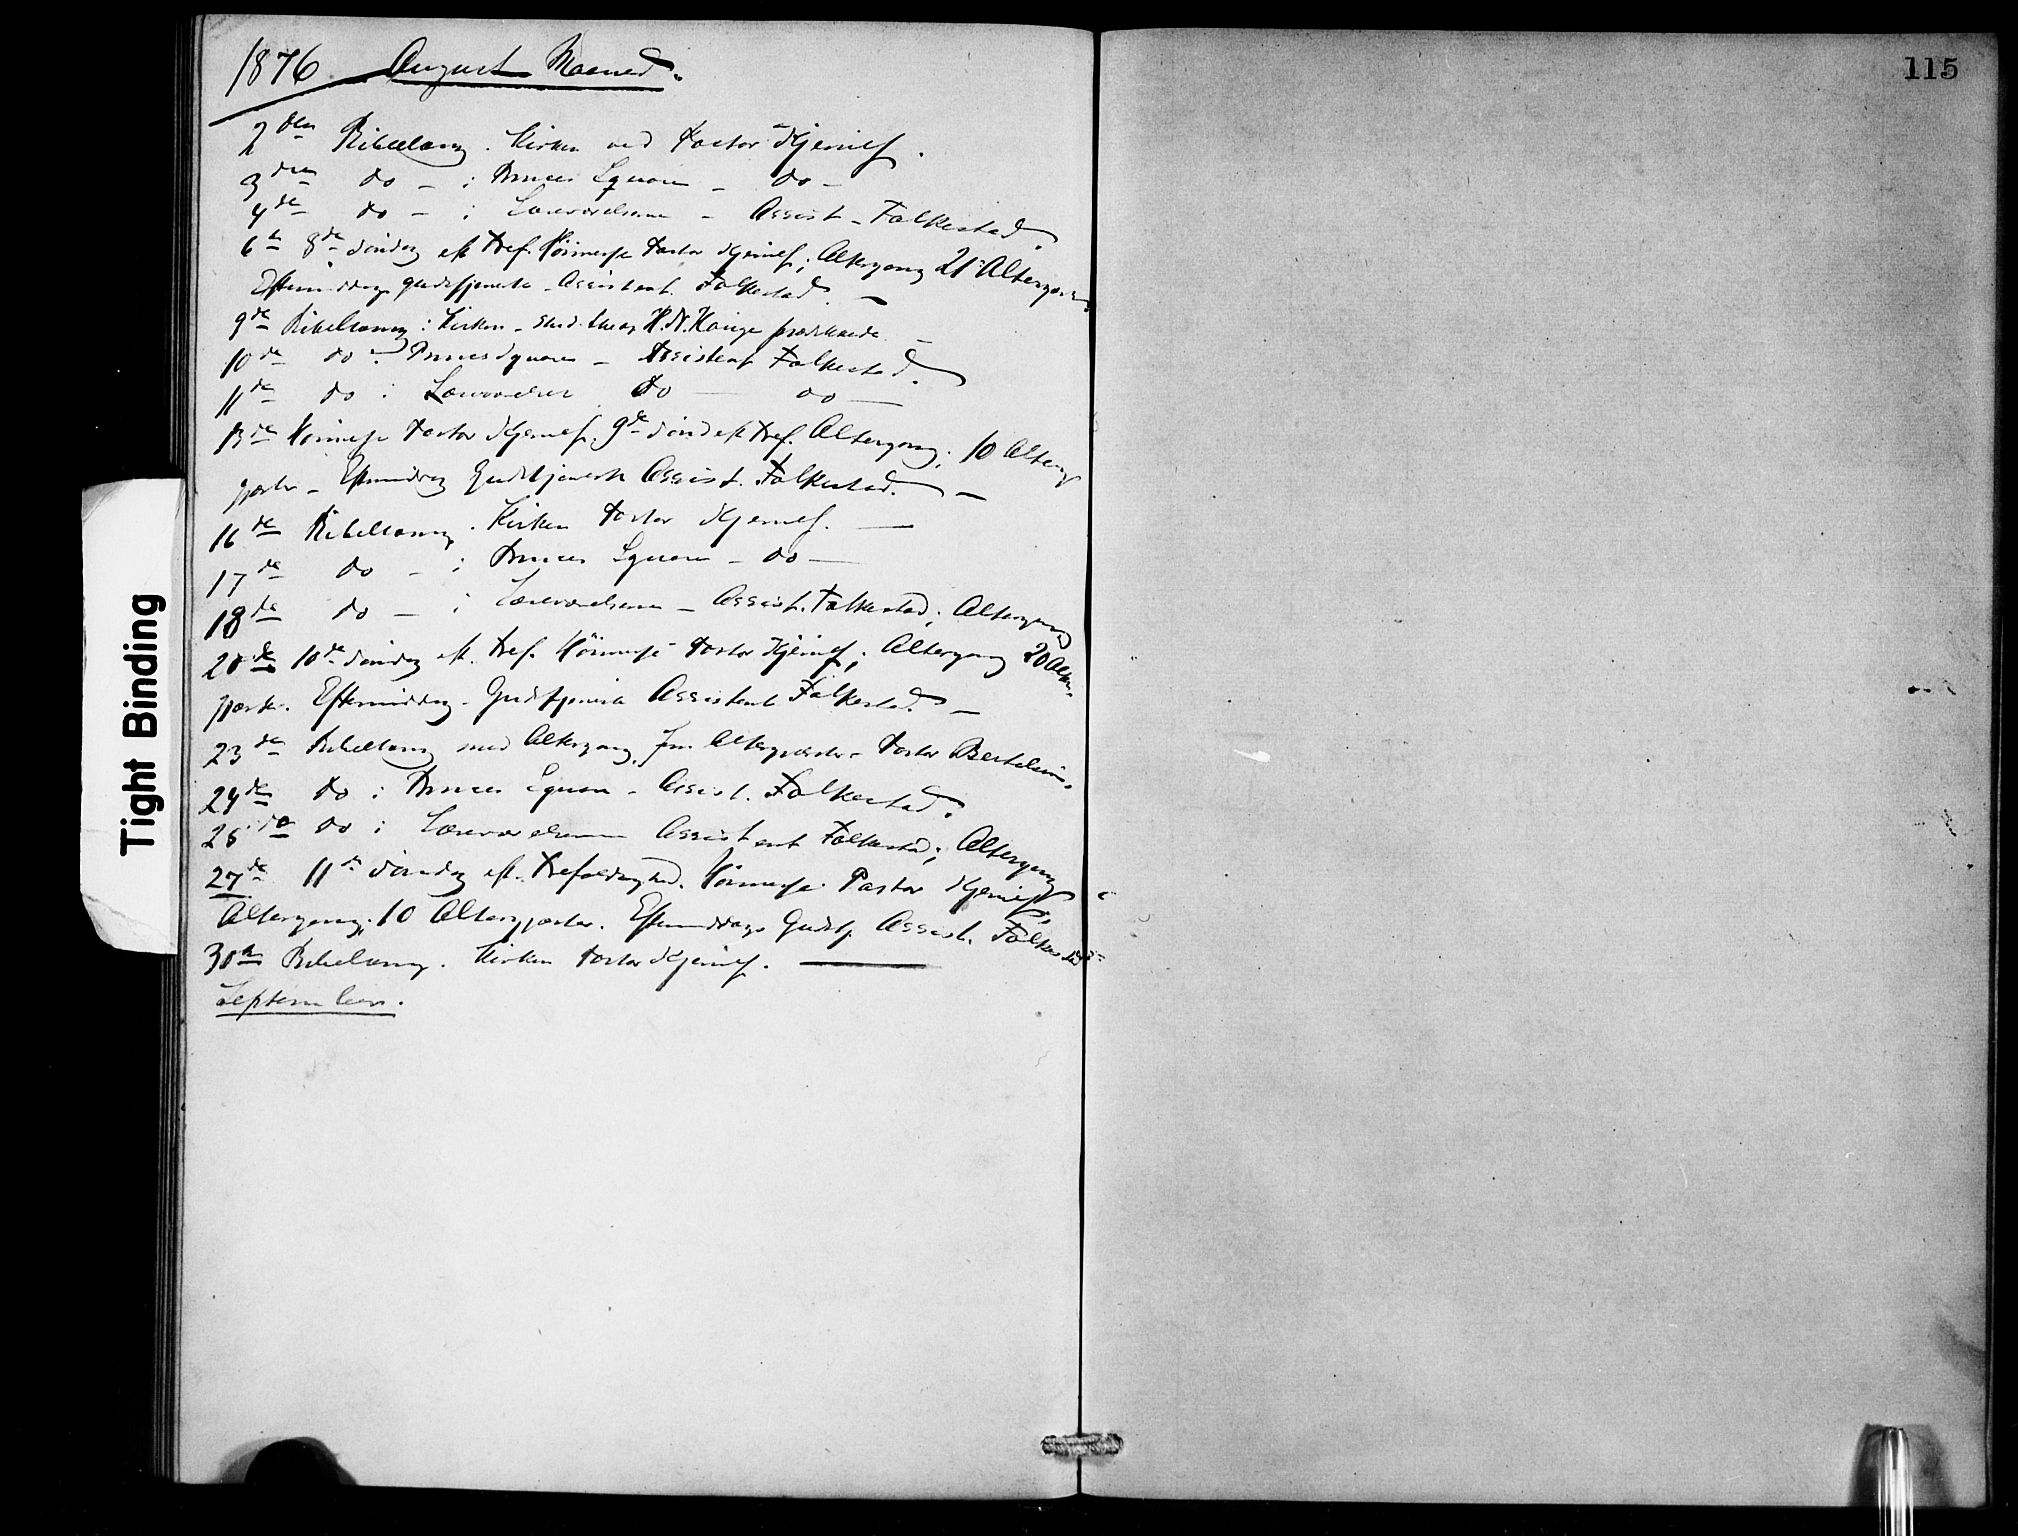 1876 August Maaned.
2den Bibellæsng. Kirken ved Pastor Kjerulf.
3die do - i Princes Square - do -
4de do - i Læseværelserne - Assist - Falkestad.
6te 8de Søndag eft Tref. Höimesse Pastor Kjerulf; Altergang 21 Altergæster
Eftermiddags gudstjeneste - Assistent Falkestad. -
9de Bibellæsng i Kirken - stud. theol H. N. Hauge prædikede. -
10de do i Princes Square - Assistent Falkestad.
11de do i Læseværelser do - do -
13de Höimesse Pastor Kjerulf. 9de Sönd eft Tref. Altergang; 10 Alterg
gjæster - Eftermiddag Gudstjeneste Assist. Falkestad. -
16de Bibellæsng. Kirken Pastor Kjerulf. -
17de do - i Princes Square - do -
18de do - i Læseværelserne - Assist. Falkestad; Altergang
20de 10de Søndag eft. Tref. Höimesse - Pastor Kjerulf; Altergang 20 Alter-
gjæster. Eftermiddag - Gudstjeneste Assistent Falkestad. -
23de Bibellæsng med Altergang, Altergjæster - Pastor
24de do i Princes Square - Assist. Falkestad.
25de do i Læseværelserne Assistent Falkestad; Altergang
27de 11te Søndag eft. Trefoldighed. Höimesse Pastor Kjerulf;
Altergang; 10 Altergjæster. Eftermiddags Gudstj. Assist. Falkestad
30te Bibellæsng. Kirken Pastor Kjerulf.
September.
115
Tight Binding